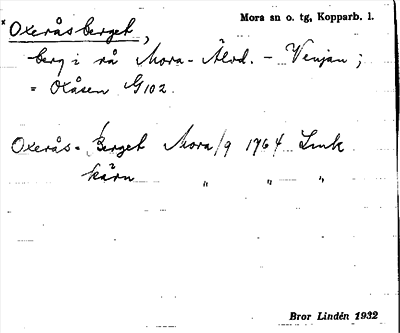 Mora sn o. tg, Kopparb. l.
*Oxeråsberget,
berg i rå Mora - Älvd. - Venjan;
= Oxåsen G102.
Oxerås - Berget Mora/9 1764 Link
kärn " " "
Bror Lindén 1932